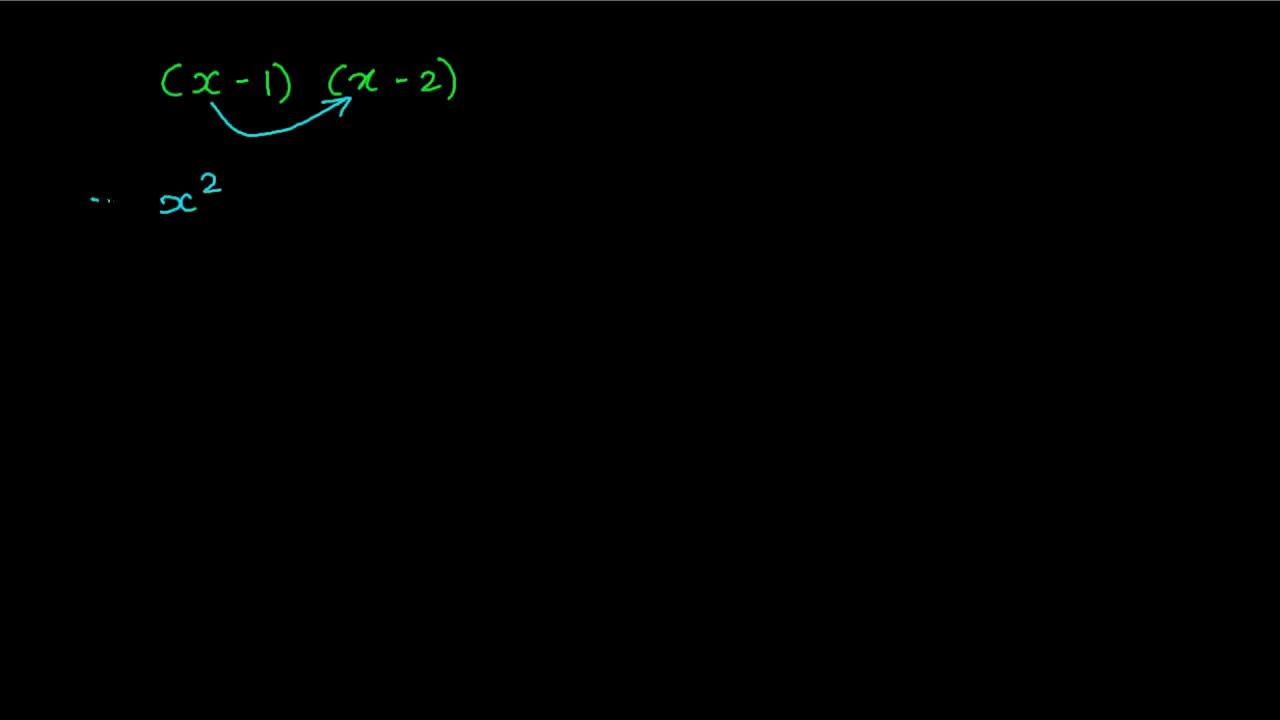 (x - 1) (x - 2)
x²